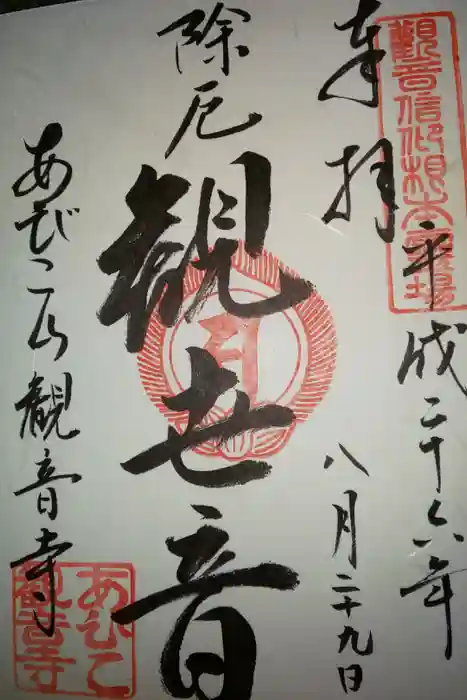 奉拝
観音信仰根本霊場
平成二十六年
八月二十九日
除厄
観世音
あびこ山観音寺
あびこ
観音寺